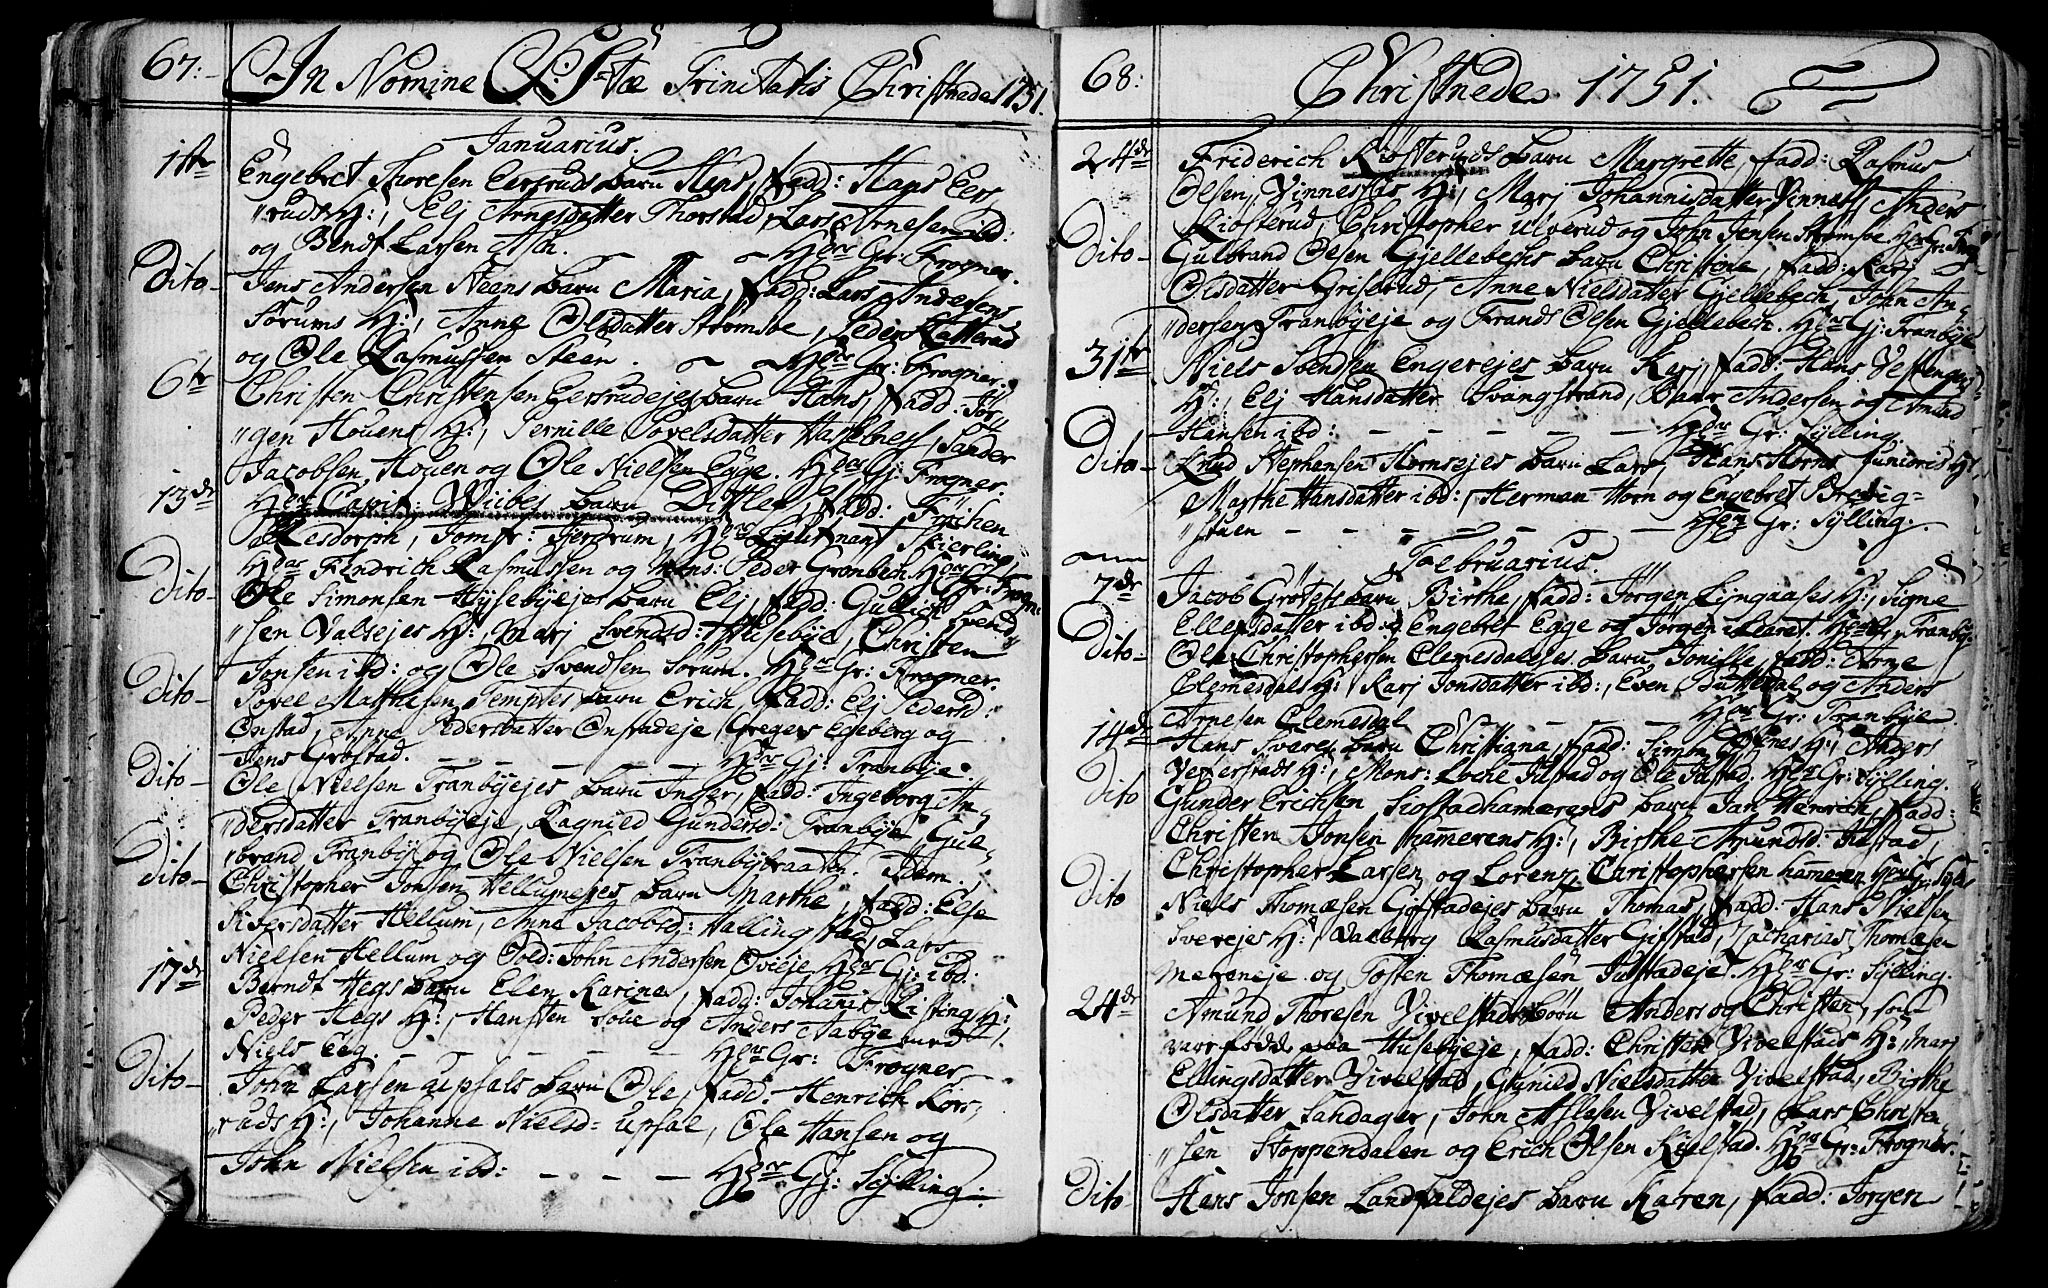 67.
In Nomine S. S. Tæ Trinitatis Christnede 1751.
Januarius.
1ste Engebret Thoresen Eertruds barn Hens, fadd: Hans Eert
"ruds H:, Elj Arnesdatter Thorstad, Lars Arnesen ibd:
og Bendt Larsen Ask. Hꝫr Gr: Frogner.
Dito Jens Andersen Neens barn Maria, fadd: Lars Andersens
Sørums H:, Anne Olsdatter Strømsøe, Peder Kætterud
og Ole Rasmussen Steen. Hꝫr Gr: Frogner.
6te Christen Christensen Eertrudejes barn Hans, fadd: Jør
"gen Houens H:, Pernille Povelsdatter Hasselness, Sander
Jacobsen Houen og Ole Nielsen Egge. Hꝫr Gj: Frogner.
13de Hꝫr Capit: Wiibes barn Ditlef, fadd: Fryken
Resdorph, Jomfr: Tjerdrum, Hꝫr Lieutnant Skierling,
Hꝫr Fendrich Rasmussen og Mons: Peder Grønbech. Hꝫr Gr: Frogn:
Dito Ole Simonsen Hysebyejes barn Elj, fadd: Gullich Svend
"sen Valsejes H:, Marj Svendsd: Husebye, Christen
Jonsen ibd: og Ole Svendsen Sørum. Hꝫr Gr: Frogner.
Dito Povel Mathisen Temptes barn Erich, fadd: Elj Pedersd:
Onstad, Anne Pedersdatter Onstadeje, Gregers Egeberg og
Jens Grøstad. Hꝫr Gj: Tranbye.
Dito Ole Nielsen Tranbyejes barn Inger, fadd: Ingeborg An
"dersdatter Tranbyeje, Ragnied Gundersd: Tranbye, Gul
"brand Tranby og Ole Nielsen Tranbybraaten. Idem.
Dito Christopher Jonsen Hellumejes barn Marthe, fadd: Else
Siversdatter Hellum, Anne Jacobsd: Hallingstad, Lars
Nielsen Hellum og Sold: John Andersen Ovieje. Hꝫr Gj: ibd:
17de Berndt Hegs barn Elen Karine, fadd: Johanis Ristings H:
Peder Hegs H:, Hansten Toue og Anders Aabye med
Niels Eeg. Hꝫr Gr: Frogner
Dito John Larsen Upsals barn Ole, fadd: Henrich Kors
"ruds H:, Johanne Nielsd: Upsal, Ole Hansen og
John Nielsen ibd: Hꝫr Gj: Sylling.
68:
Christnede 1751.
24de Friderich Kiøsteruds barn Margrette, fadd: Rasmus
Olsen, Vinnes H:, Marj Johannisdatter Vinness, Anders
Kiøsterud, Christopher Ulverud og John Jensen Strømsøe Hꝫr Gr: Frog
Dito Gulbrand Olsen Gjellebechs barn Christine, fadd: Karj
Olsdatter Griserud, Anne Nielsdatter Gjellebech, John An
"dersen Tranbyeje og Frands Olsen Gjellebech. Hꝫr Gj: Tranbye
31te Niels Svendsen Engerejes barn Karj, fadd: Hans Vest Engers
H:, Elj Hansdatter Svangstrand, Baar Andersen og Amund
Hansen ibd: Hꝫr Gr: Sylling
Dito Knud Stephensen Hornsejes barn Lars, Hans Horns Junioris H:
Marthe Hansdatter ibd:, Herman Horn og Engebret Bredig
"stuen Hꝫr Gr: Sylling.
Februarius.
7de Jacob Grøtets barn Birthe, fadd: Jørgen Lyngaases H:, Signe
Ellefsdatter ibd: Engebret Egge og Jørgen Hꝫr Gr: Tranbye
Dito Ole Christophersen Elemesdalsejes barn Jonille, fadd: Arne
Elemesdals H:, Karj Jonsdatter ibd:, Even Buttedal og Anders
Arnesen Elemesdal Hꝫr Gr: Tranbye.
14de Hans Svere barn Christiana, fadd: Simon H:, Anders
Vefferstads H:, Mons: Loche Jilstad og Ole Jilstad. Hꝫr Gr: Sylling.
Dito Gunder Erichsen Giøstadhamerens barn Jan Henrich, fadd:
Christen Jonsen hamerens H:, Birthe Amundsd: Jilstad,
Christopher Larsen og Lorenz Christophersen hameren Hꝫr Gr: Sylls
Dito Niels Thomæsen Gifstadejes barn Thomas, fadd: Hans Nielsen
Sverejes H:, Valborg Rasmusdatter Gifstad, Zacharias Thomæsen
Mereneje og Tosten Thomæsen Julstadeje. Hꝫr Gr: Sylling.
24de Amund Thoresen Vivelstads børn Anders og Christen, som
vare fødde paa Husebyeje, fadd: Christen Vivelstads H:, Marj
Ellingsdatter Vivelstad, Gunild Nielsdatter Vivelstad, Birthe
Olsdatter Sandager, John Atlesen Vivelstad, Lars Christen
"sen Stoppendalen og Erich Olsen Kjelstad. Hꝫr Gr: Frogner.
Dito Hans Jonsen Landfaldejes barn Karen, fadd: Jørgen